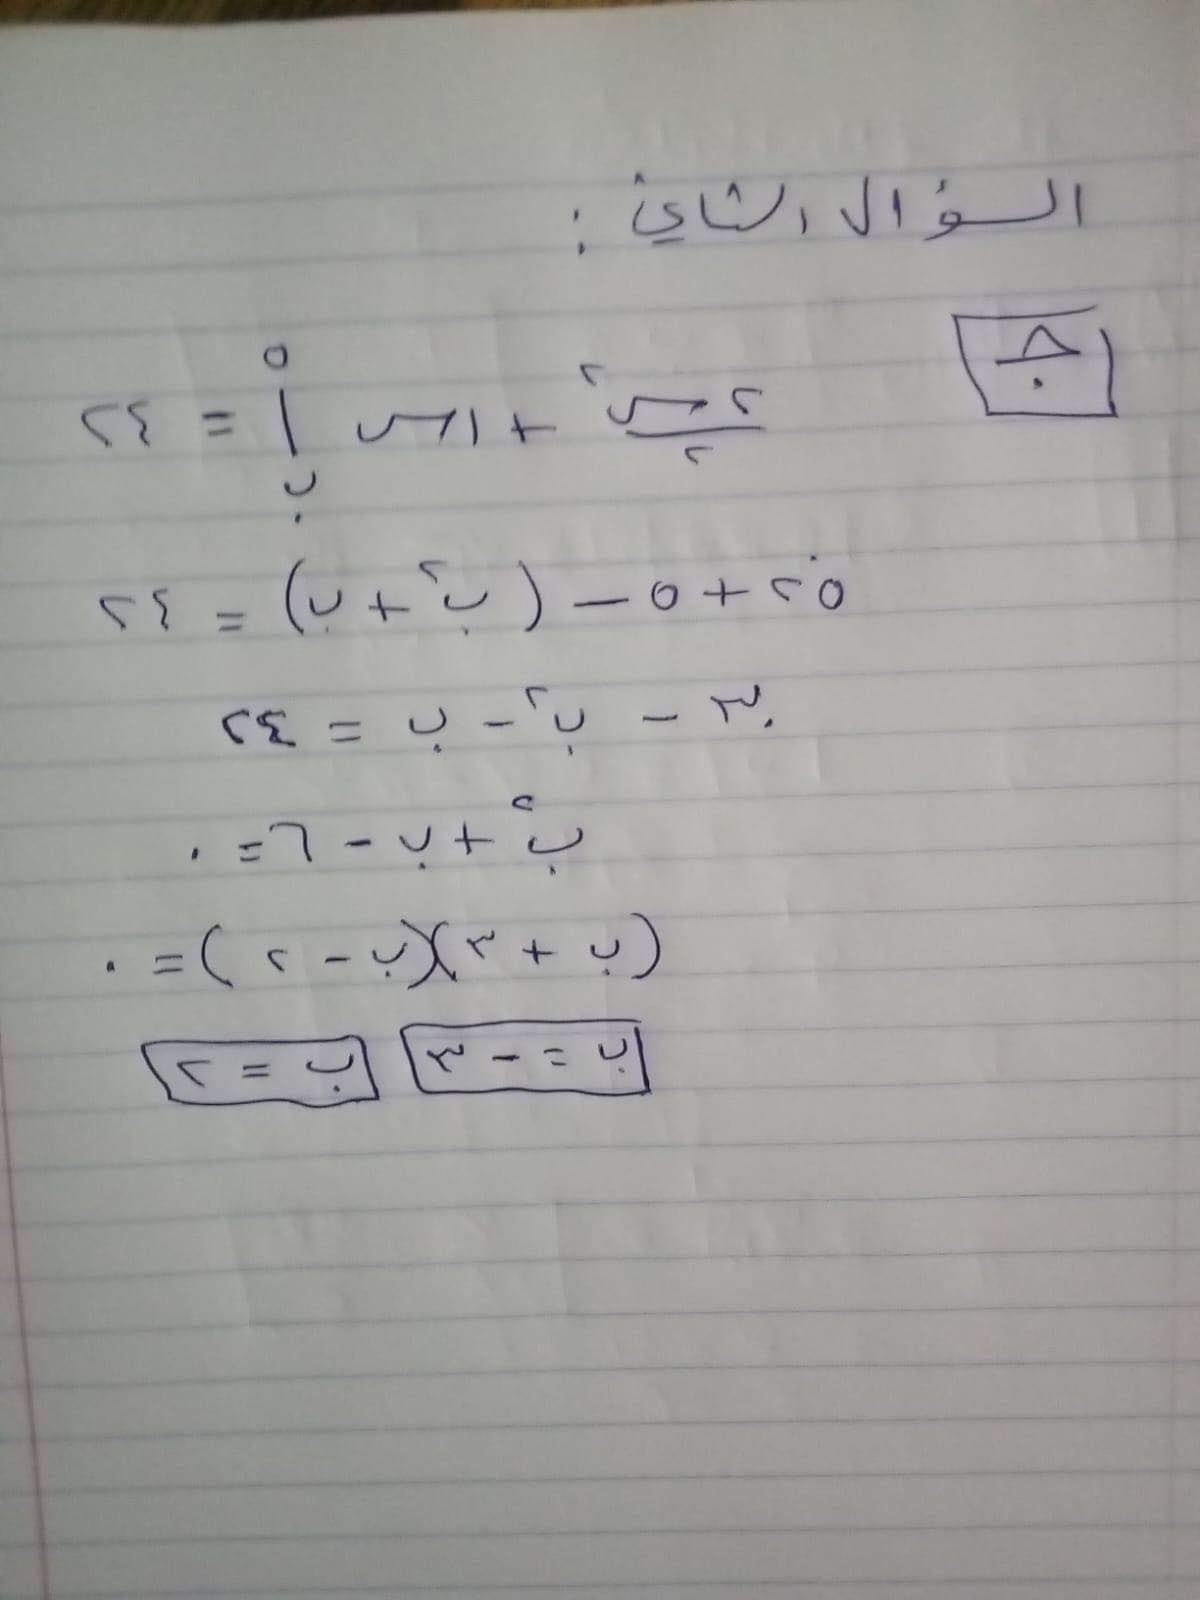 السؤال الثاني :
ج
٢س٢/٢ + ١س |٥ ب = ٢٤
٢٥ + ٥ − (ب٢ + ب) = ٢٤
٣٠ − ب٢ − ب = ٢٤
ب٢ + ب − ٦ = ٠
(ب + ٣)(ب − ٢) = ٠
ب = − ٣ ب = ٢